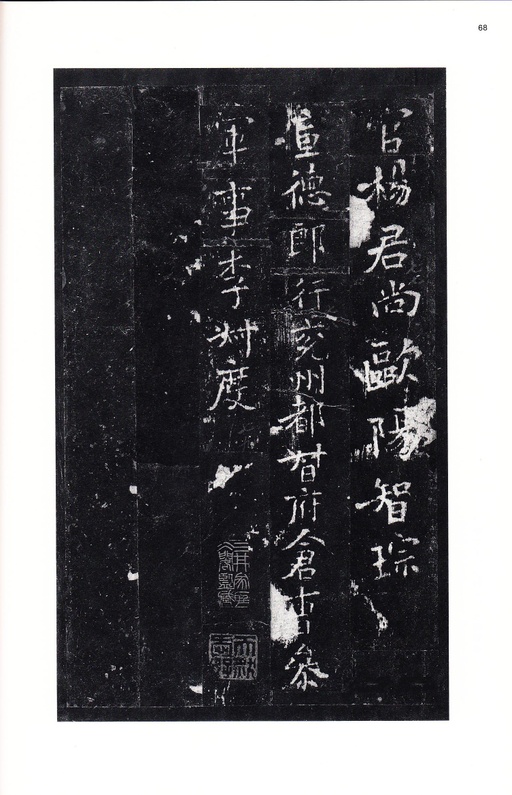 68
官楊君尚歐陽智琮
宣德郎行兗州都督府倉曹參
軍事李叔度